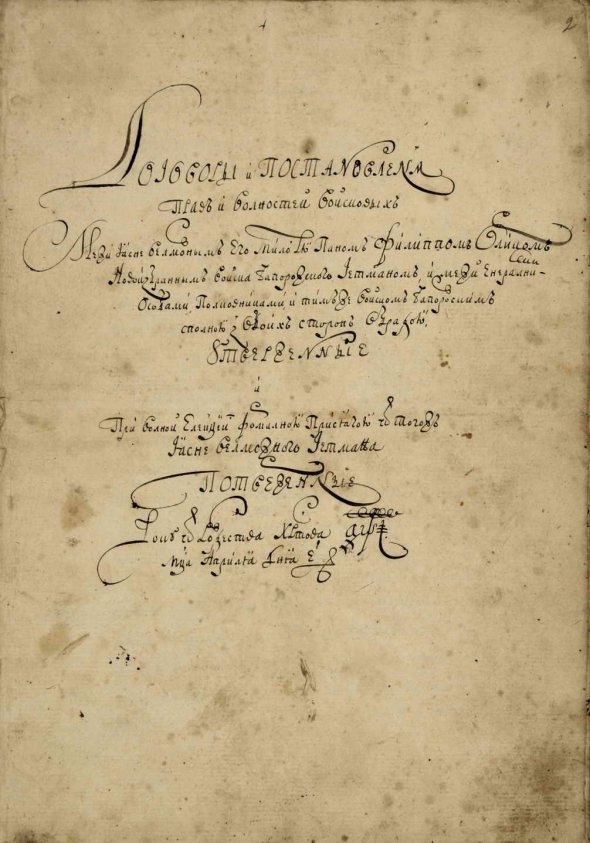 2
Договоры и постановленя
Правъ и волностей войсковыхъ
Межи Ясне велможнымъ Его Милостю Паномъ Филиппомъ Орликомъ
Новоизбраннымъ войска Запорозкого Гетманомъ, и межи Енералними
Особами, Полковниками, и тимъ же войскомъ Запорозкимъ
сполною з обоихъ сторонъ обрадою,
Утверженные
и
При волной Елекцїи формалною Присягою ѿ тогожъ
Ясне велможного Гетмана
Потверженные
Року ѿ Рожества Хрстова ҂аѱі
Мця Априля Дня е